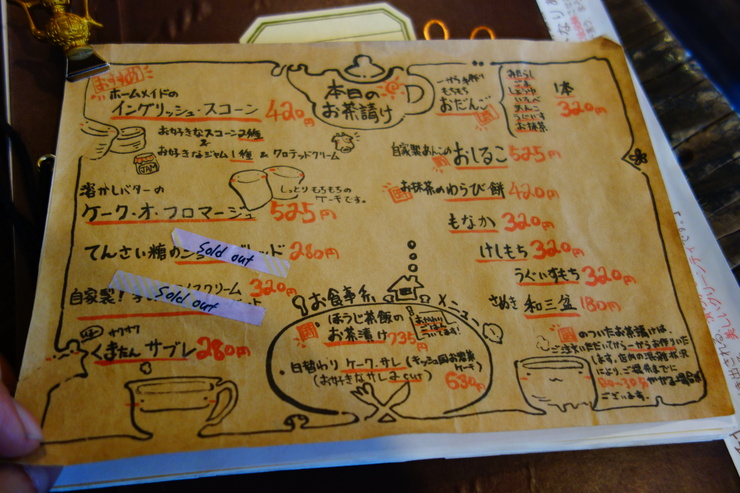 おすすめ
ホームメイドの
イングリッシュ・スコーン 420円
お好きなスコーン2種
&
お好きなジャム1種 & クロテッドクリーム
JAM
溶かしバターの
ケーク・オ・フロマージュ 525円
しっとりもちもちの
ケーキです。
てんさい糖の
ブレッド 280円
Sold out
自家製!
スクリーム 320円
Sold out
サクサク
くまたん サブレ 280円
本日の
お茶請け
もちもち
おだんご
みたらし
ごま
しょうゆ
いそべ
あんこ
うぐいす
お抹茶
1本
320円
自家製あんこのおしるこ 525円
お抹茶のわらび餅 420円
もなか 320円
けしもち 320円
うぐいすもち 320円
さぬき 和三盆 180円
お食事系メニュー
ほうじ茶飯の
お茶漬け 735円
日替わり ケーク・サレ (キッシュ風お惣菜ケーキ)
(お好きなサレ2cut) 630円
のついたお茶請けは、
ご注文いただいてから一からお作りいた
します。店内の混雑状況
により、ご提供までに
かかる場合が
ございます。